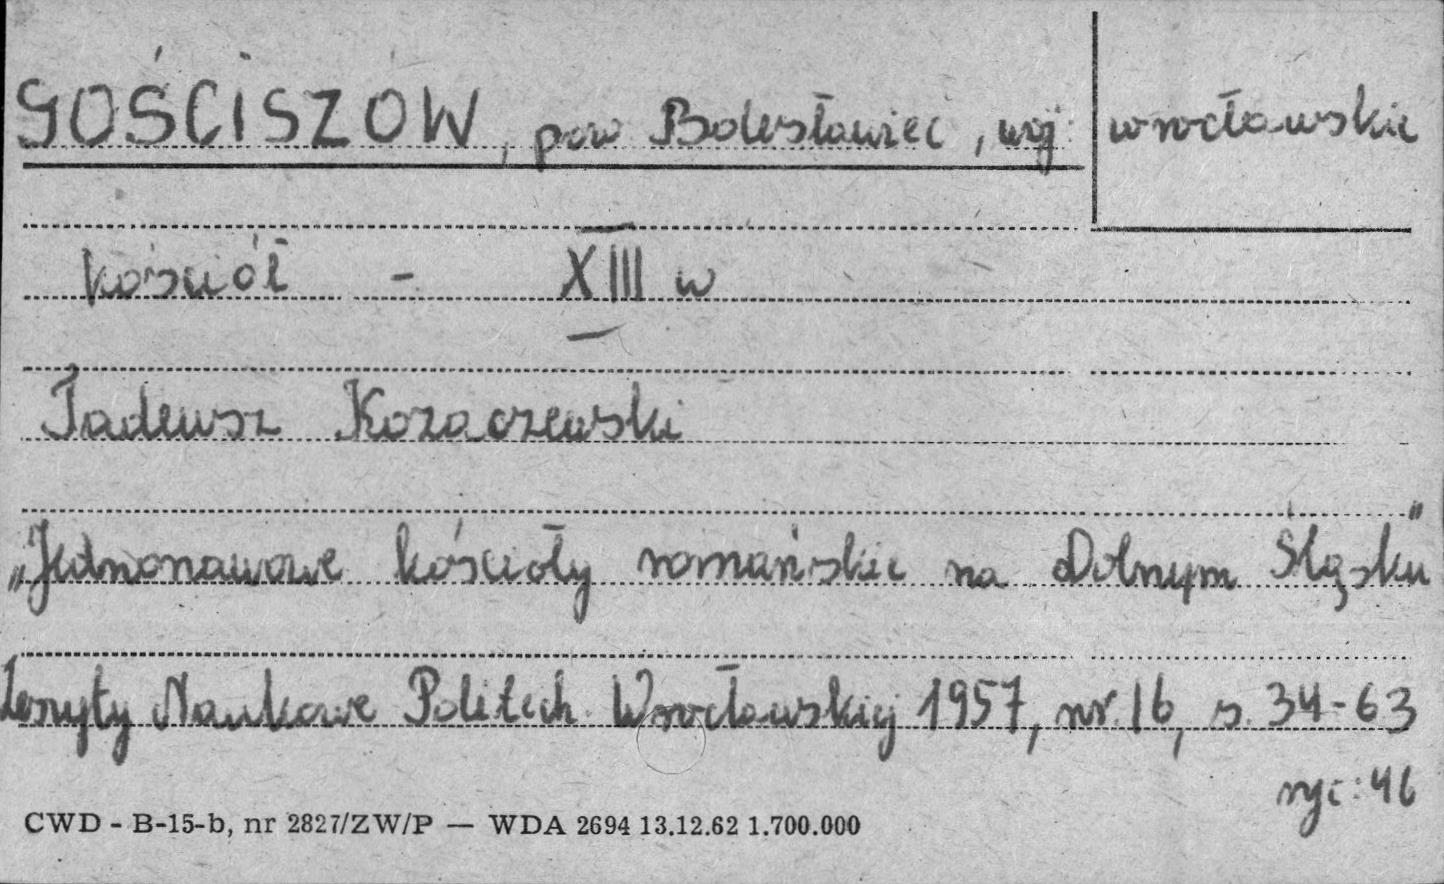 GOŚCISZÓW, pow Bolesławiec, woj. wrocławskie
kościół - XIII w
Tadeusz Kozaczewski
„Jednonawowe kościoły romańskie na Dolnym Śląsku"
Zeszyty Naukowe Politech. Wrocławskiej 1957, nr. 16, s. 34-63
ryc: 46
CWD - B-15-b, nr 2827/ZW/P — WDA 2694 13.12.62 1.700.000